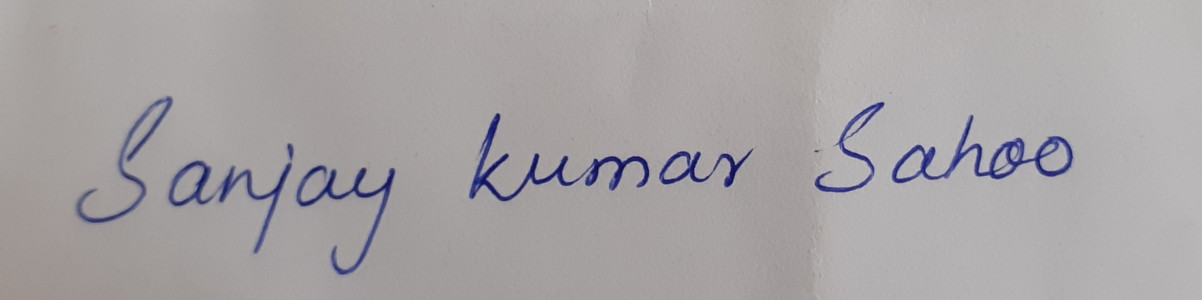 Sanjay kumar Sahoo